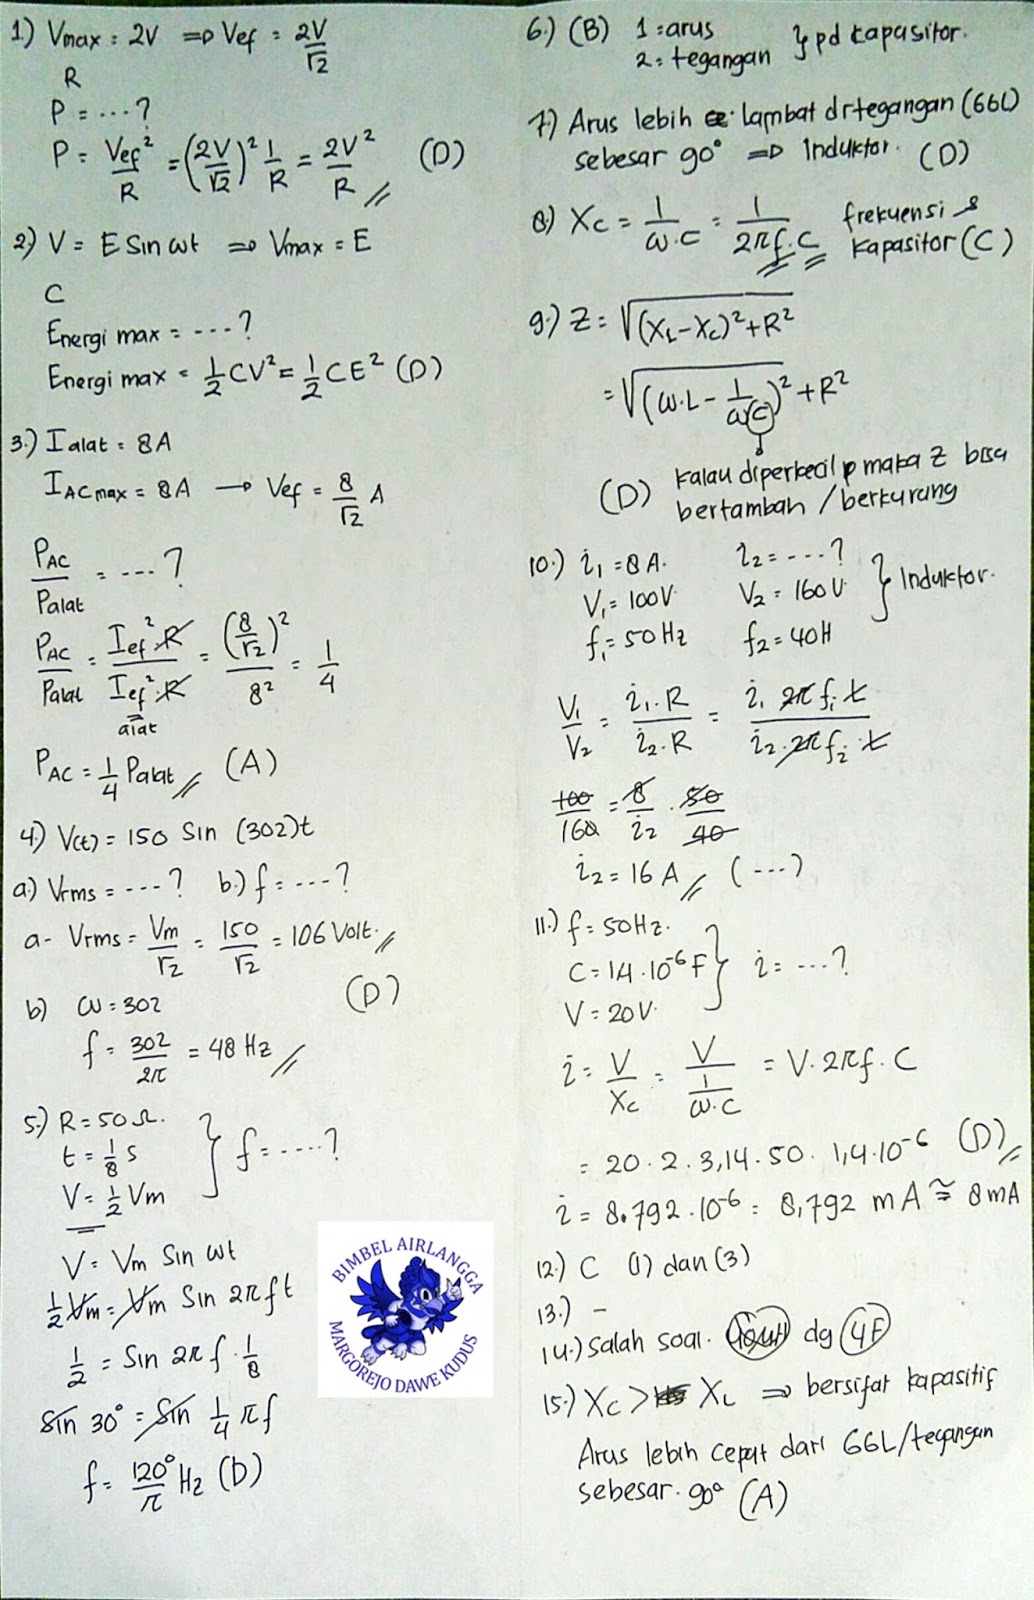 1.) Vmax = 2V ⇒ Vef = 2V/√2
R
P = ....?
P = Vef²/R = (2V/√2)² 1/R = 2V²/R (D)
2.) V = E Sin ωt ⇒ Vmax = E
C
Energi max = ....?
Energi max = 1/2 CV² = 1/2 CE² (D)
3.) I alat = 8A
I AC max = 8A → Vef = 8/√2 A
PAC/Palat = ....?
PAC/Palat = Ief²·R/Ief²·R alat = (8/√2)²/8² = 1/4
PAC = 1/4 Palat (A)
4.) V(t) = 150 Sin (302)t
a.) Vrms = ....? b.) f = ....?
a- Vrms = Vm/√2 = 150/√2 = 106 Volt.
(D)
b) ω = 302
f = 302/2π = 48 Hz
5.) R = 50 Ω.
t = 1/8 s } f = ....?
V = 1/2 Vm
V = Vm Sin ωt
1/2 Vm = Vm Sin 2π f t
1/2 = Sin 2π f · 1/8
Sin 30° = Sin 1/4 π f
f = 120°/π Hz (D)
BIMBEL AIRLANGGA
MARGOREJO DAWE KUDUS
6.) (B) 1 = arus
2 = tegangan } pd kapasitor.
7.) Arus lebih lambat dr tegangan (GGL)
sebesar 90° ⇒ Induktor. (D)
8) Xc = 1/ω.C = 1/2πf.C frekuensi &
kapasitor (C)
9.) Z = √(XL-Xc)²+R²
= √(ω.L - 1/ωC)²+R²
(D) kalau diperkecil maka Z bisa
bertambah / berkurang
10.) i1 = 8 A. i2 = ....?
V1 = 100V V2 = 160V } Induktor.
f1 = 50 Hz f2 = 40H
V1/V2 = i1.R/i2.R = i1 2π f1 L/i2.2π f2.L
100/160 = 8/i2 · 50/40
i2 = 16 A (....?)
11.) f = 50Hz.
C = 1,4.10⁻⁶ F } i = ....?
V = 20V.
i = V/Xc = V/(1/ω.C) = V.2πf.C
= 20.2.3,14.50.1,4.10⁻⁶ (D)
i = 8.792.10⁻⁶ = 8,792 mA ≅ 8 mA
12.) C (1) dan (3)
13.) -
14.) Salah soal. dg 4F
15.) Xc > XL ⇒ bersifat kapasitif
Arus lebih cepat dari GGL/tegangan
sebesar 90° (A)